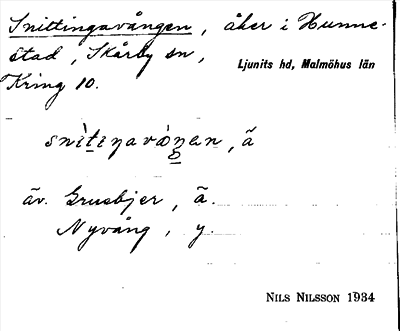 Snittingavången, åker i Hunne-
stad, Skårby sn,
Ljunits hd, Malmöhus län
Kring 10.
snìtiŋavȯŋan, ã
äv. Grusbjer, ã.
Nyvång, y.
NILS NILSSON 1934